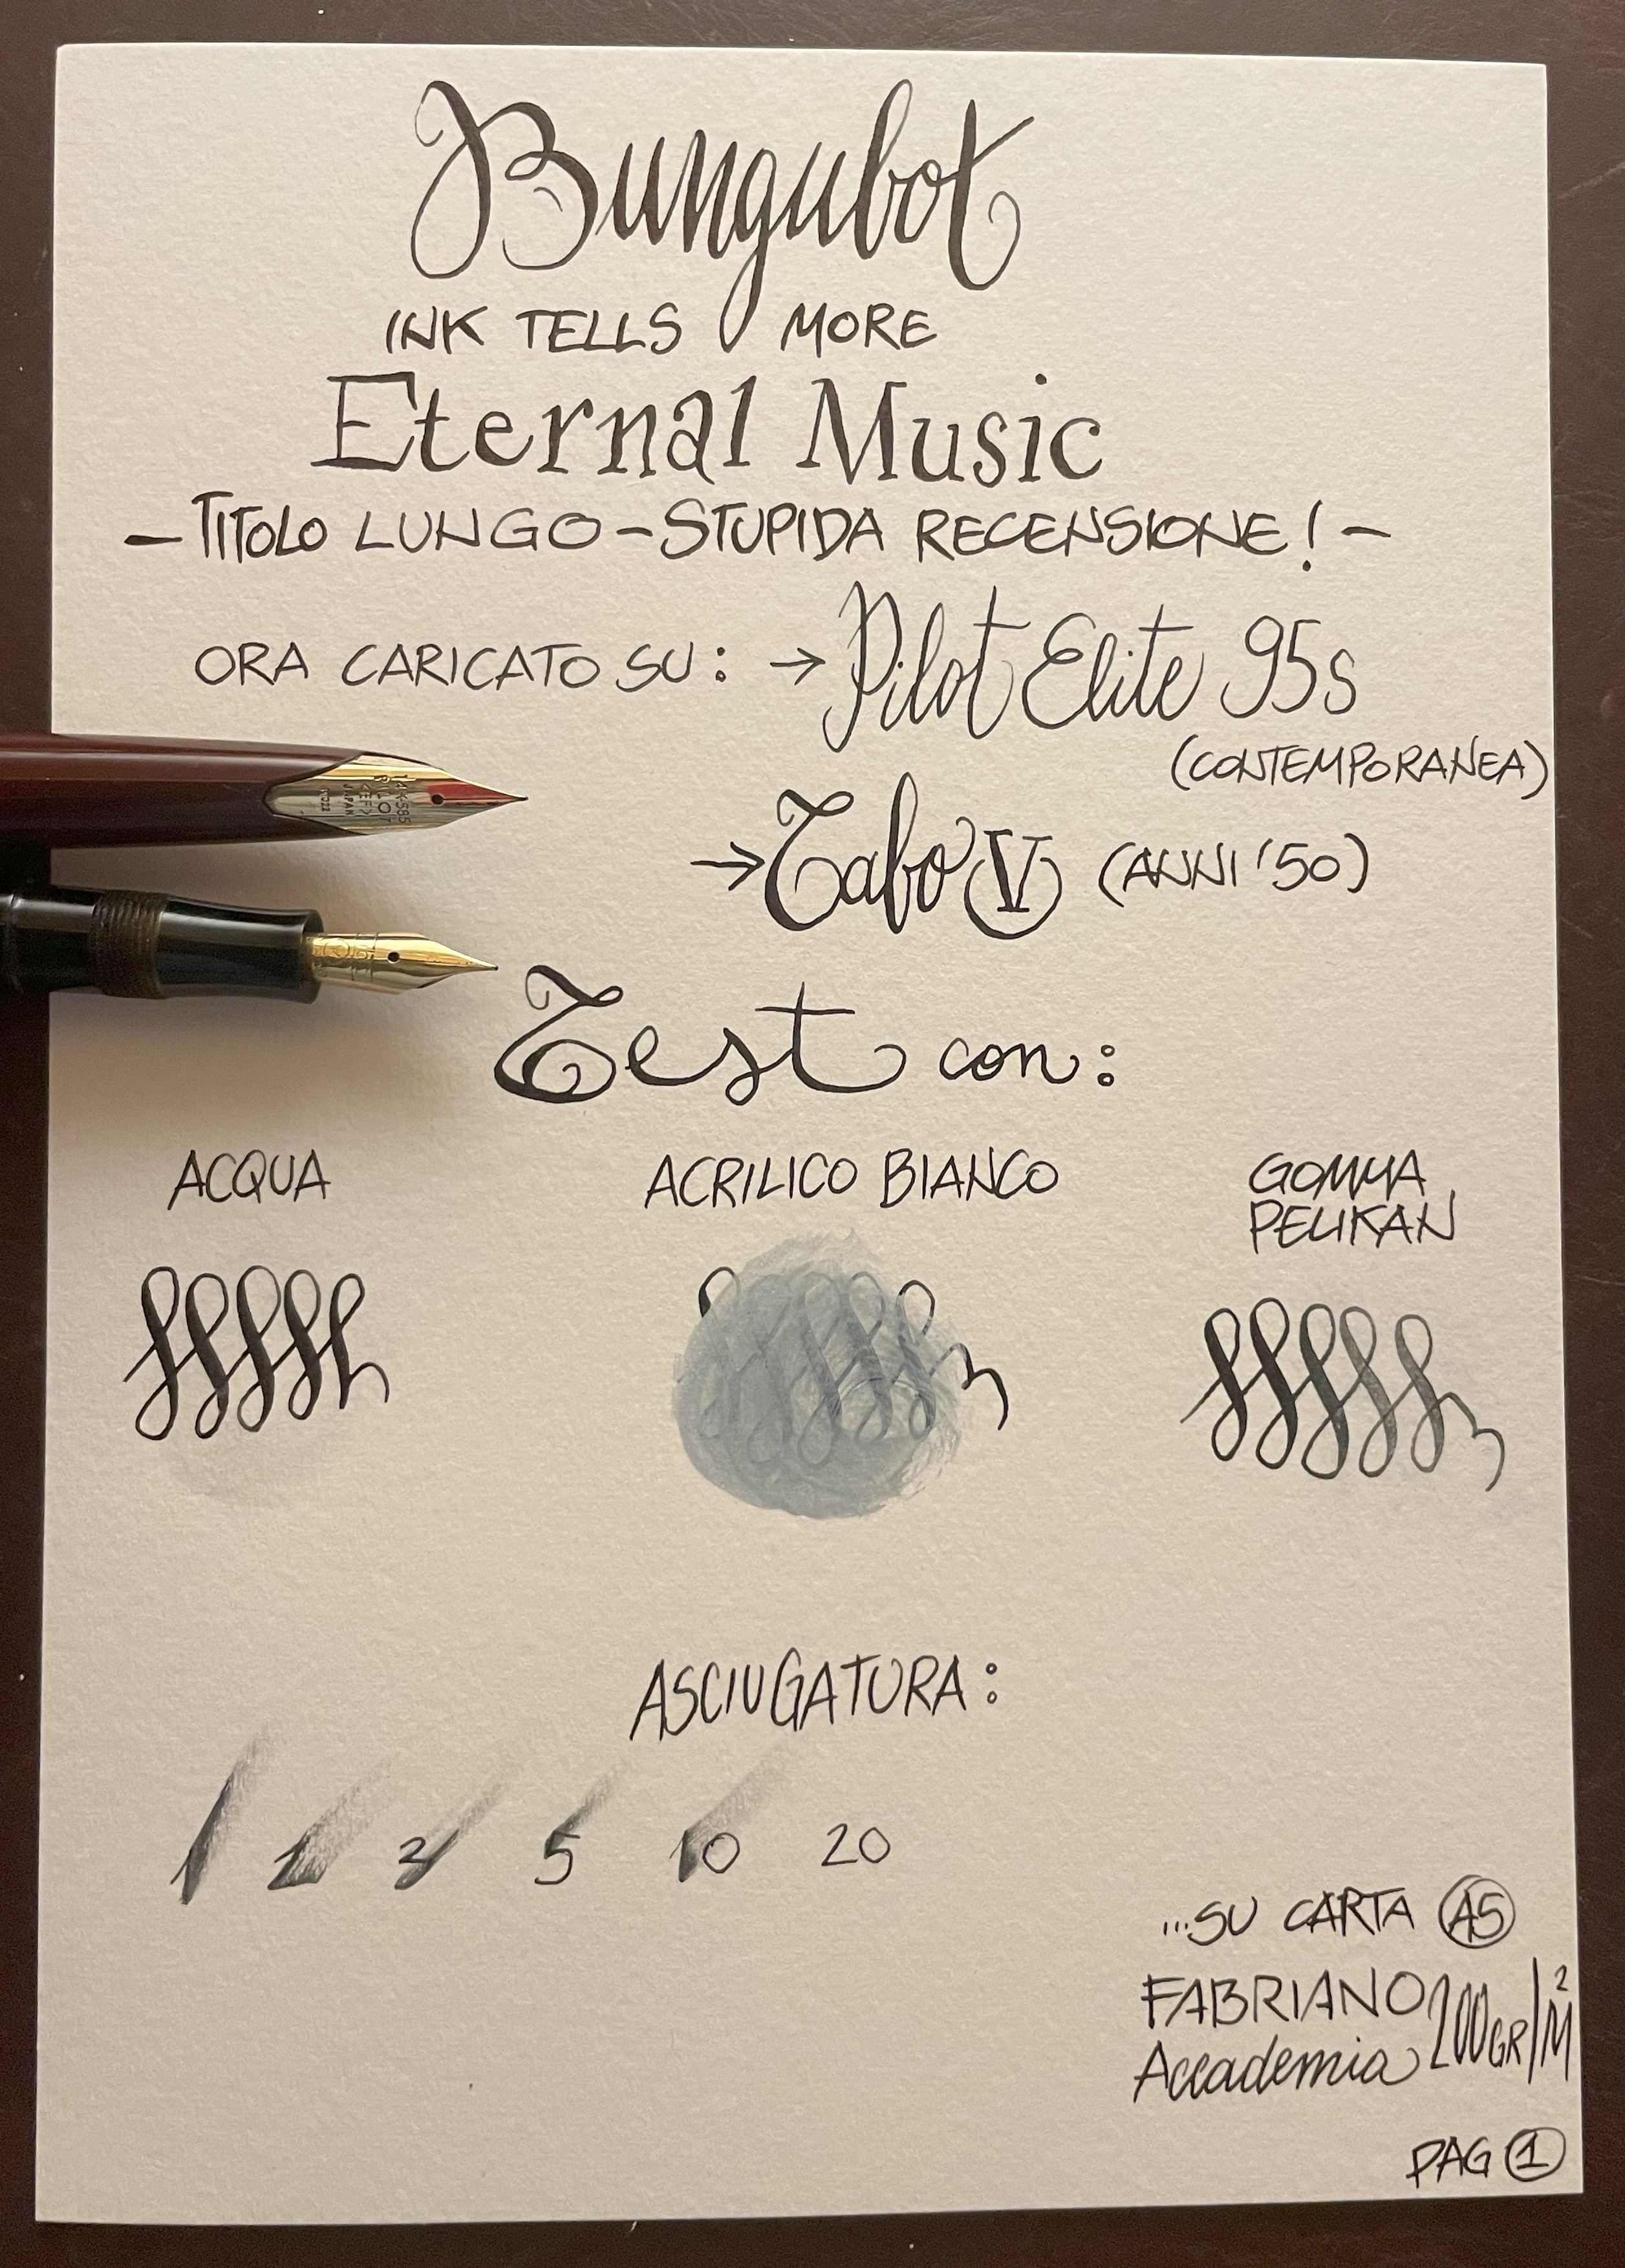 Bungubot
INK TELLS MORE
Eternal Music
- TITOLO LUNGO - STUPIDA RECENSIONE! -
ORA CARICATO SU: → Pilot Elite 95s
(CONTEMPORANEA)
→ Tabo V (ANNI '50)
14K585
PILOT
<EF>
JAPAN
Test con:
ACQUA
ACRILICO BIANCO
GOMMA
PELIKAN
ASCIUGATURA:
1 2 3 5 10 20
...SU CARTA A5
FABRIANO 200GR/M²
Accademia
PAG 1